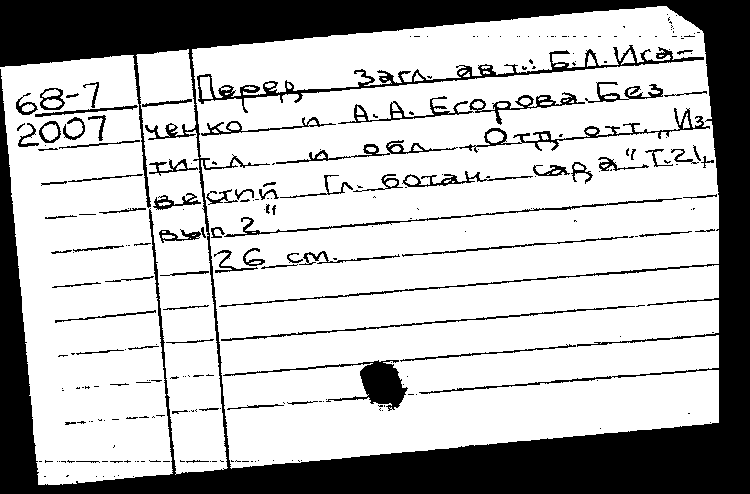 68-7
2007
Перед загл. авт.: Б.Л. Иса-
ченко и А.А. Егорова. Без
тит. л. и обл „Отд. отт. „Из-
вестий Гл. ботан. сада“. Т. 21,
вып. 2“
26 см.